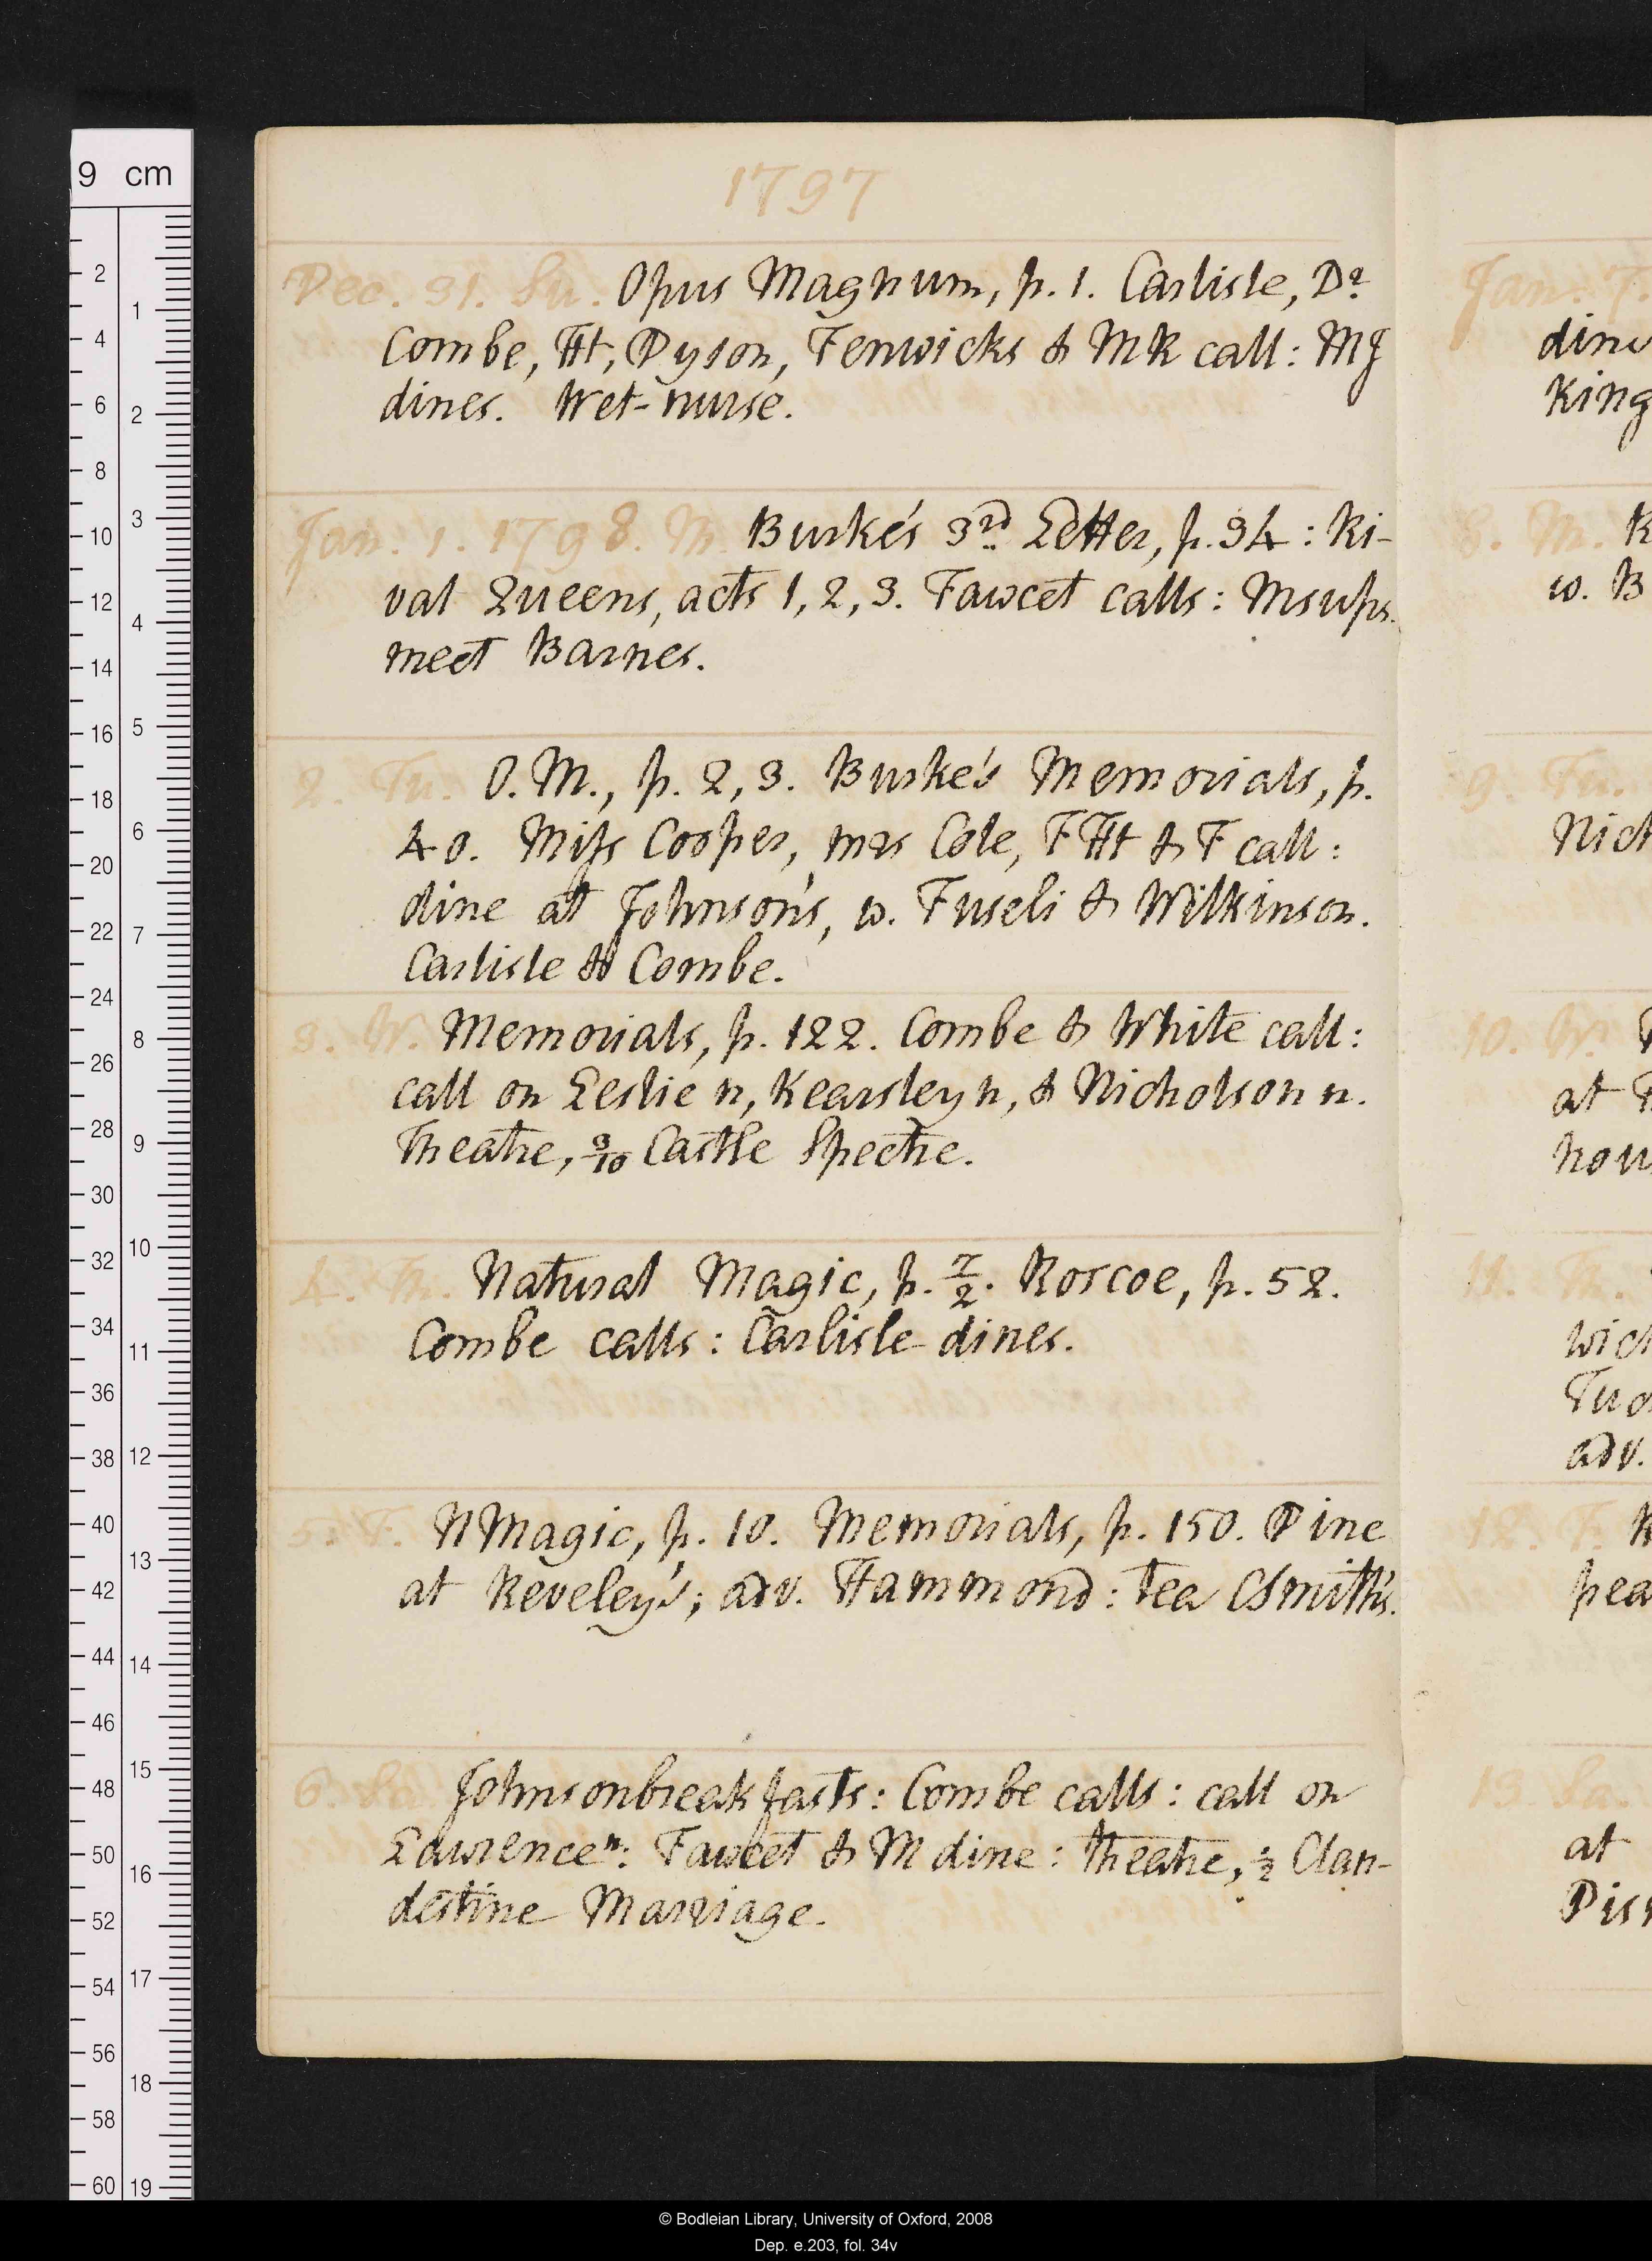 1797
Dec. 31. Su. Opus Magnum, p. 1. Carlisle, Dr
Combe, Ht, Dyson, Fenwicks & MR call: MJ
dines. Wet-nurse.
Jan. 1. 1798. M. Burke's 3rd Letter, p. 94: Ri-
val Queens, acts 1, 2, 3. Fawcet calls: M sups.
meet Barnes.
2. Tu. O. M., p. 2, 3. Burke's Memorials, p.
40. Miss Cooper, mrs Cole, F Ht & F call:
dine at Johnson's, w. Fuseli & Wilkinson.
Carlisle & Combe.
3. W. Memorials, p. 122. Combe & White call:
call on Leslie n, Kearsley n, & Nicholson n.
Theatre, 9/10 Castle Spectre.
4. Th. Natural Magic, p. 7/2. Roscoe, p. 52.
Combe calls: Carlisle dines.
5. F. N Magic, p. 10. Memorials, p. 150. Dine
at Reveley's; adv. Hammond: tea C Smith's.
6. Sa. Johnson breakfasts: Combe calls: call on
Lawrence n: Fawcet & M dine: theatre, 1/2 Clan-
destine Marriage.
Jan. 7.
dine
King
8. M.
w. B
9. Tu.
Nich
10. W.
at
hou
11. Th.
wich
Tuo
adv.
12. F.
pea
13. Sa.
at
Diss
9 cm
2
4
6
8
10
12
14
16
18
20
22
24
26
28
30
32
34
36
38
40
42
44
46
48
50
52
54
56
58
60
1
2
3
4
5
6
7
8
9
10
11
12
13
14
15
16
17
18
19
© Bodleian Library, University of Oxford, 2008
Dep. e.203, fol. 34v